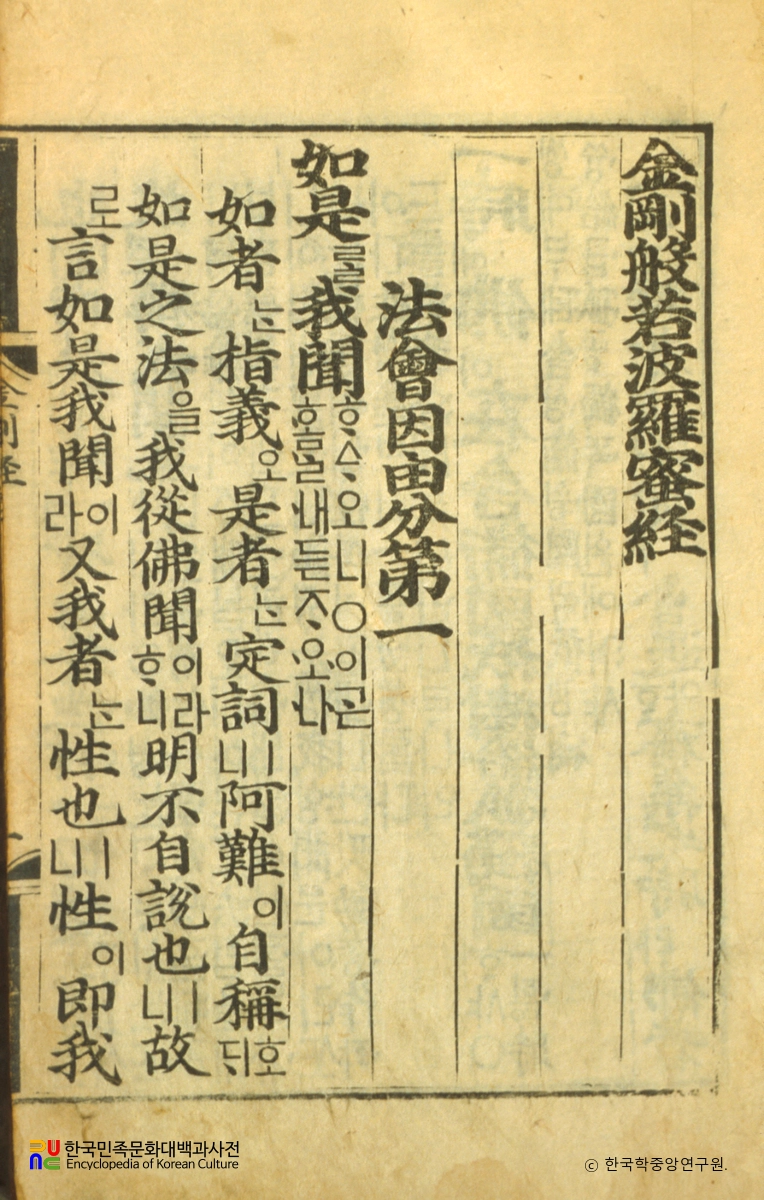 金剛般若波羅蜜経
法會因由分第一
如是를我聞ᄒᆞᅀᆞ오니○이곧홈을내듣ᄌᆞ오나
如者는指義오是者는定詞ㅣ니阿難이自稱호ᄃᆡ
如是之法을我從佛聞이라ᄒᆞ니明不自說也ㅣ니故
로言如是我聞이라又我者는性也ㅣ니性이即我
金剛経
한국민족문화대백과사전
Encyclopedia of Korean Culture
ⓒ 한국학중앙연구원.